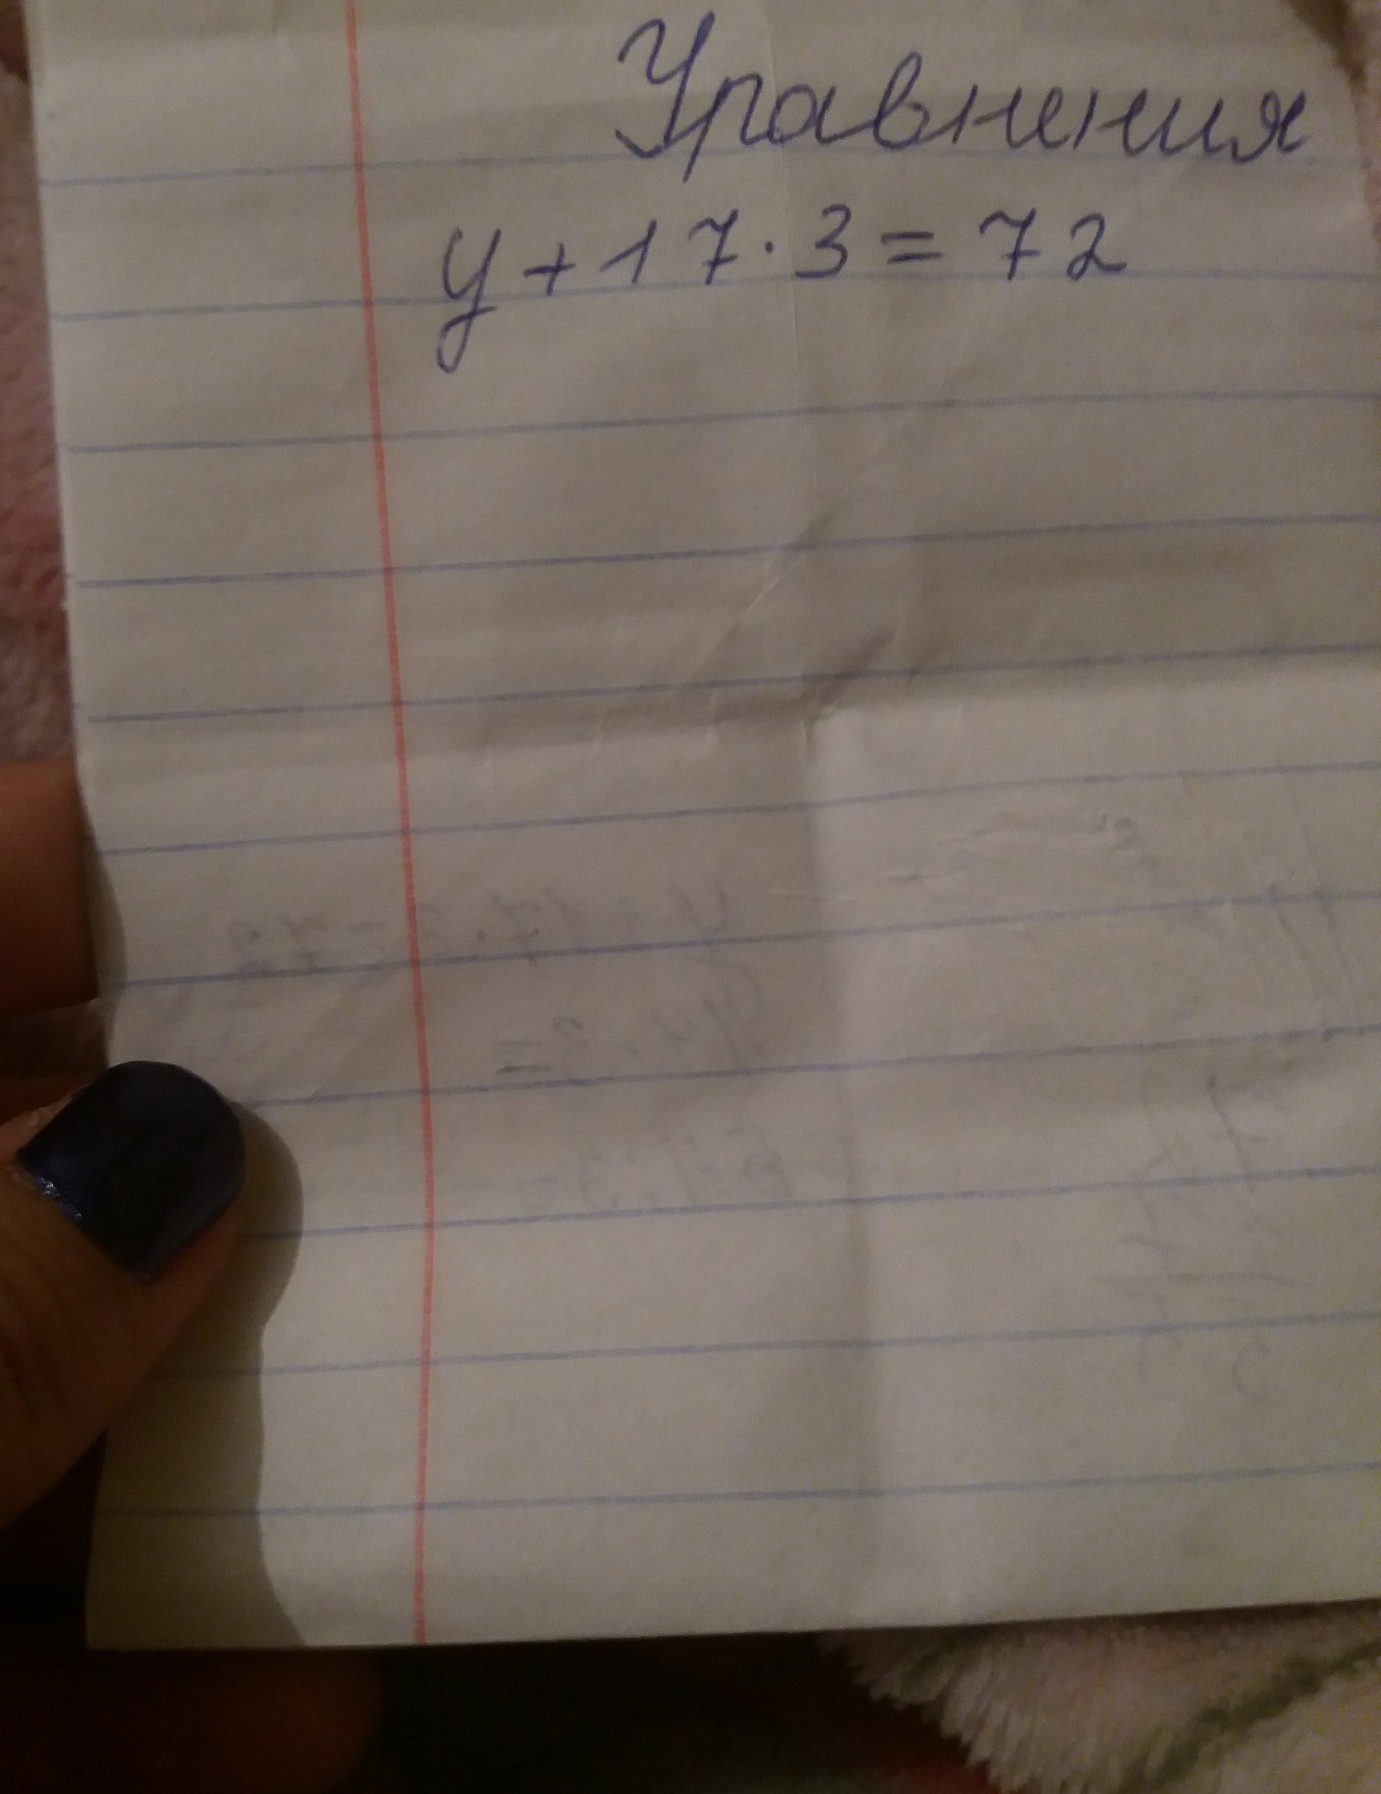 Уравнения
у + 17 · 3 = 72